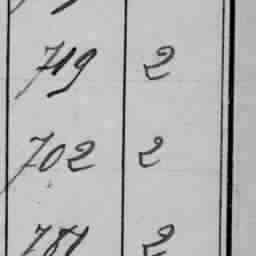 719 2
702 2
781 2